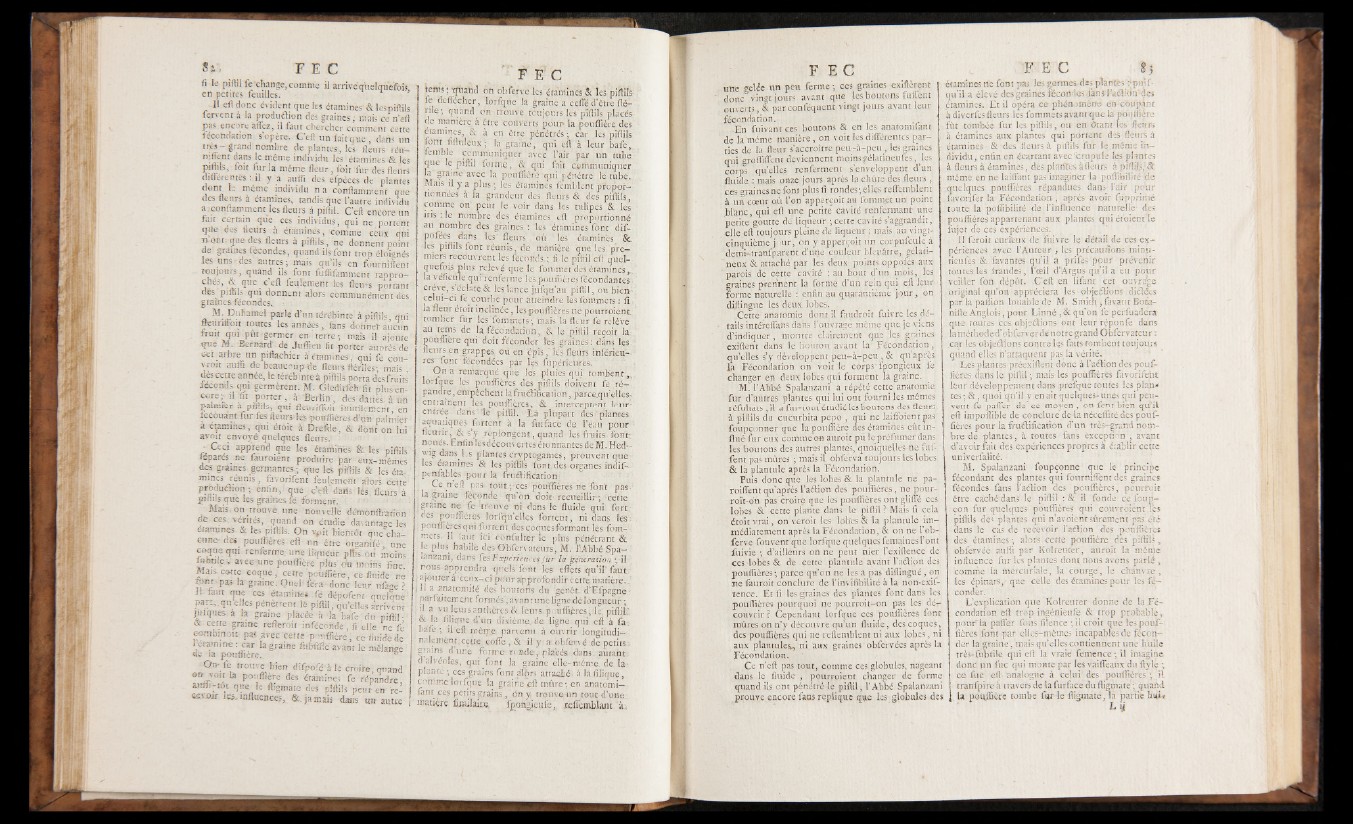 82 F E C
si le pistil se change, comme il arrive quelquefois,
en petites feuilles.
Il est donc évident que les étamines & les pistils
servent à la production des graines ; mais ce n'est
pas encore assez, il faut chercher comment cette
fécondation s'opère. C'est un fait que, dans un
très-grand nombre de plantes, les fleurs réu-
nissent dans le même individu les étamines & les
pistils, soit sur la même fleur, soit sur des fleurs
différentes : il y a aussi des espèces de plantes
dont le même individu n'a constamment que
des fleurs à étamines, tandis que l'autre individu
a constamment les fleurs à pistil. C'est encore un
fait certain que ces individus, qui ne portent
que des fleurs à étamines, comme ceux qui
n'ont que des fleurs à pistils, ne donnent point
de graines fécondes, quand ils sont trop éloignés
les uns des autres ; mais qu'ils en fournissent
toujours, quand ils sont suffisamment rappro-
chés, & que c'est seulement les fleurs portant
des pistils qui donnent alors communément des
graines fécondes.
M. Duhamel parle d'un térébinte à pistils, qui
fleurissoit toutes les années, sans donner aucun
fruit qui pût germer en terre ; mais il ajoute
que M. Bernard de Jussieu fit porter auprès de
cet arbre un pistachier à étamines, qui se cou-
vroit aussi de beaucoup de fleurs stériles ; mais
dès cette année, le térébinte à pistils porta des fruits
féconds qui germèrent. M. Gleditsch fit plus en-
core ; il fit porter, à Berlin, des dattes à un
palmier à pistils, qui fleurissoit inutilement, en
secouant sur ses fleurs les poussières d'un palmier
à étamines, qui étoit à Dresde, & dont on lui
avoit envoyé quelques fleurs.
Ceci apprend que les étamines & les pistils
séparés ne sauroient produire par eux-mêmes
des graines germantes ; que les pistils & les éta-
mines réunis, favorisent seulement alors cette
production ; enfin, que c'est dans les fleurs à
pistils que les graines se forment.
Mais on trouve une nouvelle démonstration
de ces vérités, quand on étudie davantage les
étamines & les pistils. On voit bientôt que cha-
cune des poussières est un être organisé, une
coque qui renferme une liqueur plus ou moins
subtile, avec une poussière plus ou moins fine.
Mais cette coque, cette poussière, ce fluide ne
font pas la graine. Quel sera donc leur usage ?
Il faut que ces étamines se déposent quelque
part, qu'elles pénètrent le pistil, qu'elles arrivent
jusques à la graine placée à la base du pistil ;
& cette graine resteroit inféconde, si elle ne se
combinoit pas avec cette poussière, ce fluide de
l'étamine : car la graine subsiste avant le mélange
de la poussière.
On se trouve bien disposé à le croire, quand
on voit la poussière des étamines se répandre,
aussi-tôt que le stigmate des pistils peut en re-
cevoir les influences, & jamais dans un autre
F E C
tems ; quand on observe les étamines & les pistils
se dessécher, lorsque la graine a cessé d'être sté-
rile ; quand on trouve toujours les pistils placés
de manière à être couverts pour la poussière des
étamines, & à en être pénétrés ; car les pistils
sont fistuleux ; la graine, qui est à leur base,
semble communiquer avec l'air par un tube
que le pistil forme, & qui fait communiquer
la graine avec la poussière qui pénètre le tube.
Mais il y a plus ; les étamines semblent propor-
tionnées à la grandeur des fleurs & des pistils,
comme on peut le voir dans les tulipes & les
iris : le nombre des étamines est proportionné
au nombre des graines : les étamines sont dis-
posées dans les fleurs où les étamines &
les pistils sont réunis, de manière que les pre-
miers recouvrent les seconds ; si le pistil est quel-
quefois plus relevé que le sommet des étamines,
la vésicule qui renferme les poussières fécondantes
crève, s'éclate & les lance jusqu'au pistil, ou bien
celui-ci se courbe pour atteindre les sommets : si
la fleur étoit inclinée, les poussières ne pourroient
tomber sur les sommets ; mais la fleur se relève
au tems de la fécondation, & le pistil reçoit la
poussière qui doit féconder les graines : dans les
fleurs en grappes ou en épis, les fleurs inférieu-
res sont fécondées par les supérieures.
On a remarqué que les pluies qui tombent,
lorsque les poussières des pistils doivent se ré-
pandre, empêchent la fructification, parce qu'elles
entraînent les poussières, & interceptent leur
entrée dans le pistil. La plupart des plantes
aquatiques sortent à la surface de l'eau pour
fleurir, & s'y replongent, quand les fruits sont
noués. Enfin les découvertes étonnantes de M. Hed-
wig dans les plantes cryptogames, prouvent que
les étamines & les pistils sont des organes indis-
pensables pour la fructification.
Ce n'est pas tout ; ces poussières ne sont pas
la graine féconde qu'on doit recueillir ; cette
graine ne se trouve ni dans le fluide qui sort
des poussières lorsqu'elles sortent, ni dans les
poussières qui sortent des coques formant les som-
mets. Il faut ici consulter le plus pénétrant &
le plus habile des Observateurs, M. l'Abbé Spa-
lanzani, dans ses Expériences sur la génération ; il
nous apprendra quels sont les effets qu'il faut
ajouter à ceux-ci pour approfondir cette matière.
Il a anatomisé des boutons du genêt d'Espagne
parfaitement formés, avant une ligne de longueur ;
il a vu leurs anthères & leurs poussières, le pistil
& la silique d'un dixième de ligne qui est à sa
base ; il est même parvenu à ouvrir longitudi-
nalement cette cosse, & il y a observé de petits
grains d'une forme ronde, placés dans autant
d'alvéoles, qui sont la graine elle-même de la
plante ; ces grains sont alors attachés à la silique,
comme lorsque la graine est mûre : en anatomi-
sant ces petits grains, on y trouve un tout d'une
matière similaire, spongieuse, ressemblant à
F E C
une gelée un peu ferme ; ces graines existèrent
donc vingt jours avant que les boutons fussent
ouverts, & par conséquent vingt jours avant leur
fécondation.
En suivant ces boutons & en les anatomisant
de la même manière, on voit les différentes par-
ties de la fleur s'accroître peu-à-peu, les graines
qui grossissent deviennent moins gélatineuses, les
corps qu'elles renferment s'enveloppent d'un
fluide : mais onze jours après la chûte des fleurs,
ces graines ne sont plus si rondes ; elles ressemblent
à un cœur où l'on apperçoit au sommet un point
blanc, qui est une petite cavité renfermant une
petite goutte de liqueur ; cette cavité s'aggrandit,
elle est toujours pleine de liqueur ; mais au vingt-
cinquième jour, on y apperçoit un corpuscule à
demi-transparent d'une couleur blanchâtre, gélati-
neux & attaché par les deux points opposés aux
parois de cette cavité : au bout d'un mois, les
graines prennent la forme d'un rein qui est leur
forme naturelle : enfin au quarantième jour, on
distingue les deux lobes.
Cette anatomie dont il faudroit suivre les dé-
tails intéressans dans l'ouvrage même que je viens
d'indiquer, montre clairement que les graines
existent dans le bouton avant la Fécondation,
qu'elles s'y développent peu-à-peu, & qu'après
la Fécondation on voit le corps spongieux se
changer en deux lobes qui forment la graine.
M. l'Abbé Spalanzani a répété cette anatomie
sur d'autres plantes qui lui ont fourni les mêmes
résultats, il a sur-tout étudié les boutons des fleurs
à pistils du cucurbita pepo, qui ne laissoient pas
soupçonner que la poussière des étamines eût in-
flué sur eux comme on auroit pu le présumer dans
les boutons des autres plantes, quoiqu'elles ne fus-
sent pas mûres ; mais il observa toujours les lobes
& la plantule après la Fécondation.
Puis donc que les lobes & la plantule ne pa-
roissent qu'après l'action des poussières, ne pour-
roit-on pas croire que les poussières ont glissé ces
lobes & cette plante dans le pistil ? Mais si cela
étoit vrai, on veroit les lobes & la plantule im-
médiatement après la Fécondation, & on ne l'ob-
serve souvent que lorsque quelques semaines l'ont
suivie ; d'ailleurs on ne peut nier l'existence de
ces lobes & de cette plantule avant l'action des
poussières ; parce qu'on ne les a pas distingué, on
ne sauroit conclure de l'invisibilité à la non-exis-
tence. Et si les graines des plantes sont dans les
poussières pourquoi ne pourroit-on pas les dé-
couvrir ? Cependant lorsque ces poussières sont
mûres on n'y découvre qu'un fluide, des coques,
des poussières, qui ne ressemblent ni aux lobes, ni
aux plantules, ni aux graines observées après la
Fécondation.
Ce n'est pas tout, comme ces globules, nageant
dans le fluide, pourroient changer de forme
quand ils ont pénétré le pistil, l'Abbé Spalanzani
prouve encore sans replique que les globules des
F E C 83
étamines ne sont pas les germes des plantes, puis-
qu'il a élevé des graines fécondes sans l'action des
étamines. Et il opéra ce phénomène en coupant
à diverses fleurs les sommets avant que la poussière
fût tombée sur les pistils, ou en ôtant les fleurs
à étamines aux plantes qui portent des fleurs à
étamines & des fleurs à pistils sur le même in-
dividu, enfin en écartant avec scrupule les plantes
à fleurs à étamines, des plantes à fleurs à pistils, &
même en ne laissant pas imaginer la possibilité de
quelques poussières répandues dans l'air pour
favoriser la Fécondation, après avoir supprimé
toute la possibilité de l'influence naturelle des
poussières appartenant aux plantes qui étoient le
sujet de ces expériences.
Il seroit curieux de suivre le détail de ces ex-
périences avec l'Auteur, les précautions minu-
tieuses & savantes qu'il a prises pour prévenir
toutes les fraudes, l'œil d'Argus qu'il a eu pour
veiller son dépôt. C'est en lisant cet ouvrage
original qu'on appréciera les objections dictées
par la passion louable de M. Smith, savant Bota-
niste Anglois, pour Linné, & qu'on se persuadera
que toutes ces objections ont leur réponse dans
la méthode d'observer de notre grand Observateur :
car les objections contre les faits tombent toujours
quand elles n'attaquent pas la vérité.
Les plantes préexistent donc à l'action des pous-
sières dans le pistil ; mais les poussières favorisent
leur développement dans presque toutes les plan-
tes ; &, quoi qu'il y en ait quelques-unes qui peu-
vent se passer de ce moyen, on sent bien qu'il
est impossible de conclure de la nécessité des pous-
sières pour la fructification d'un très-grand nom-
bre de plantes, à toutes sans exception, avant
d'avoir fait des expériences propres à établir cette
universalité.
M. Spalanzani soupçonne que le principe
fécondant des plantes qui fournissent des graines
fécondes sans l'action des poussières, pourroit
être caché dans le pistil : & il fonde ce soup-
çon sur quelques poussières qui couvroient les
pistils des plantes qui n'avoient sûrement pas été
dans le cas de recevoir l'action des poussières
des étamines ; alors cette poussière des pistils,
observée aussi par Kolreuter, auroit la même
influence sur les plantes dont nous avons parlé,
comme la mercuriale, la courge, le chanvre,
les épinars, que celle des étamines pour les fé-
conder.
L'explication que Kolreuter donne de la Fé-
condation est trop ingénieuse & trop probable,
pour la passer sous silence ; il croit que les pous-
sières sont par elles-mêmes incapables de fécon-
der la graine, mais qu'elles contiennent une huile
très-subtile qui est la vraie semence ; il imagine
donc un suc qui monte par les vaisseaux du style ;
ce suc est analogue à celui des poussières ; il
transpire à travers de la surface du stigmate ; quand
la poussière tombe sur le stigmate, la partie hui-
L ij